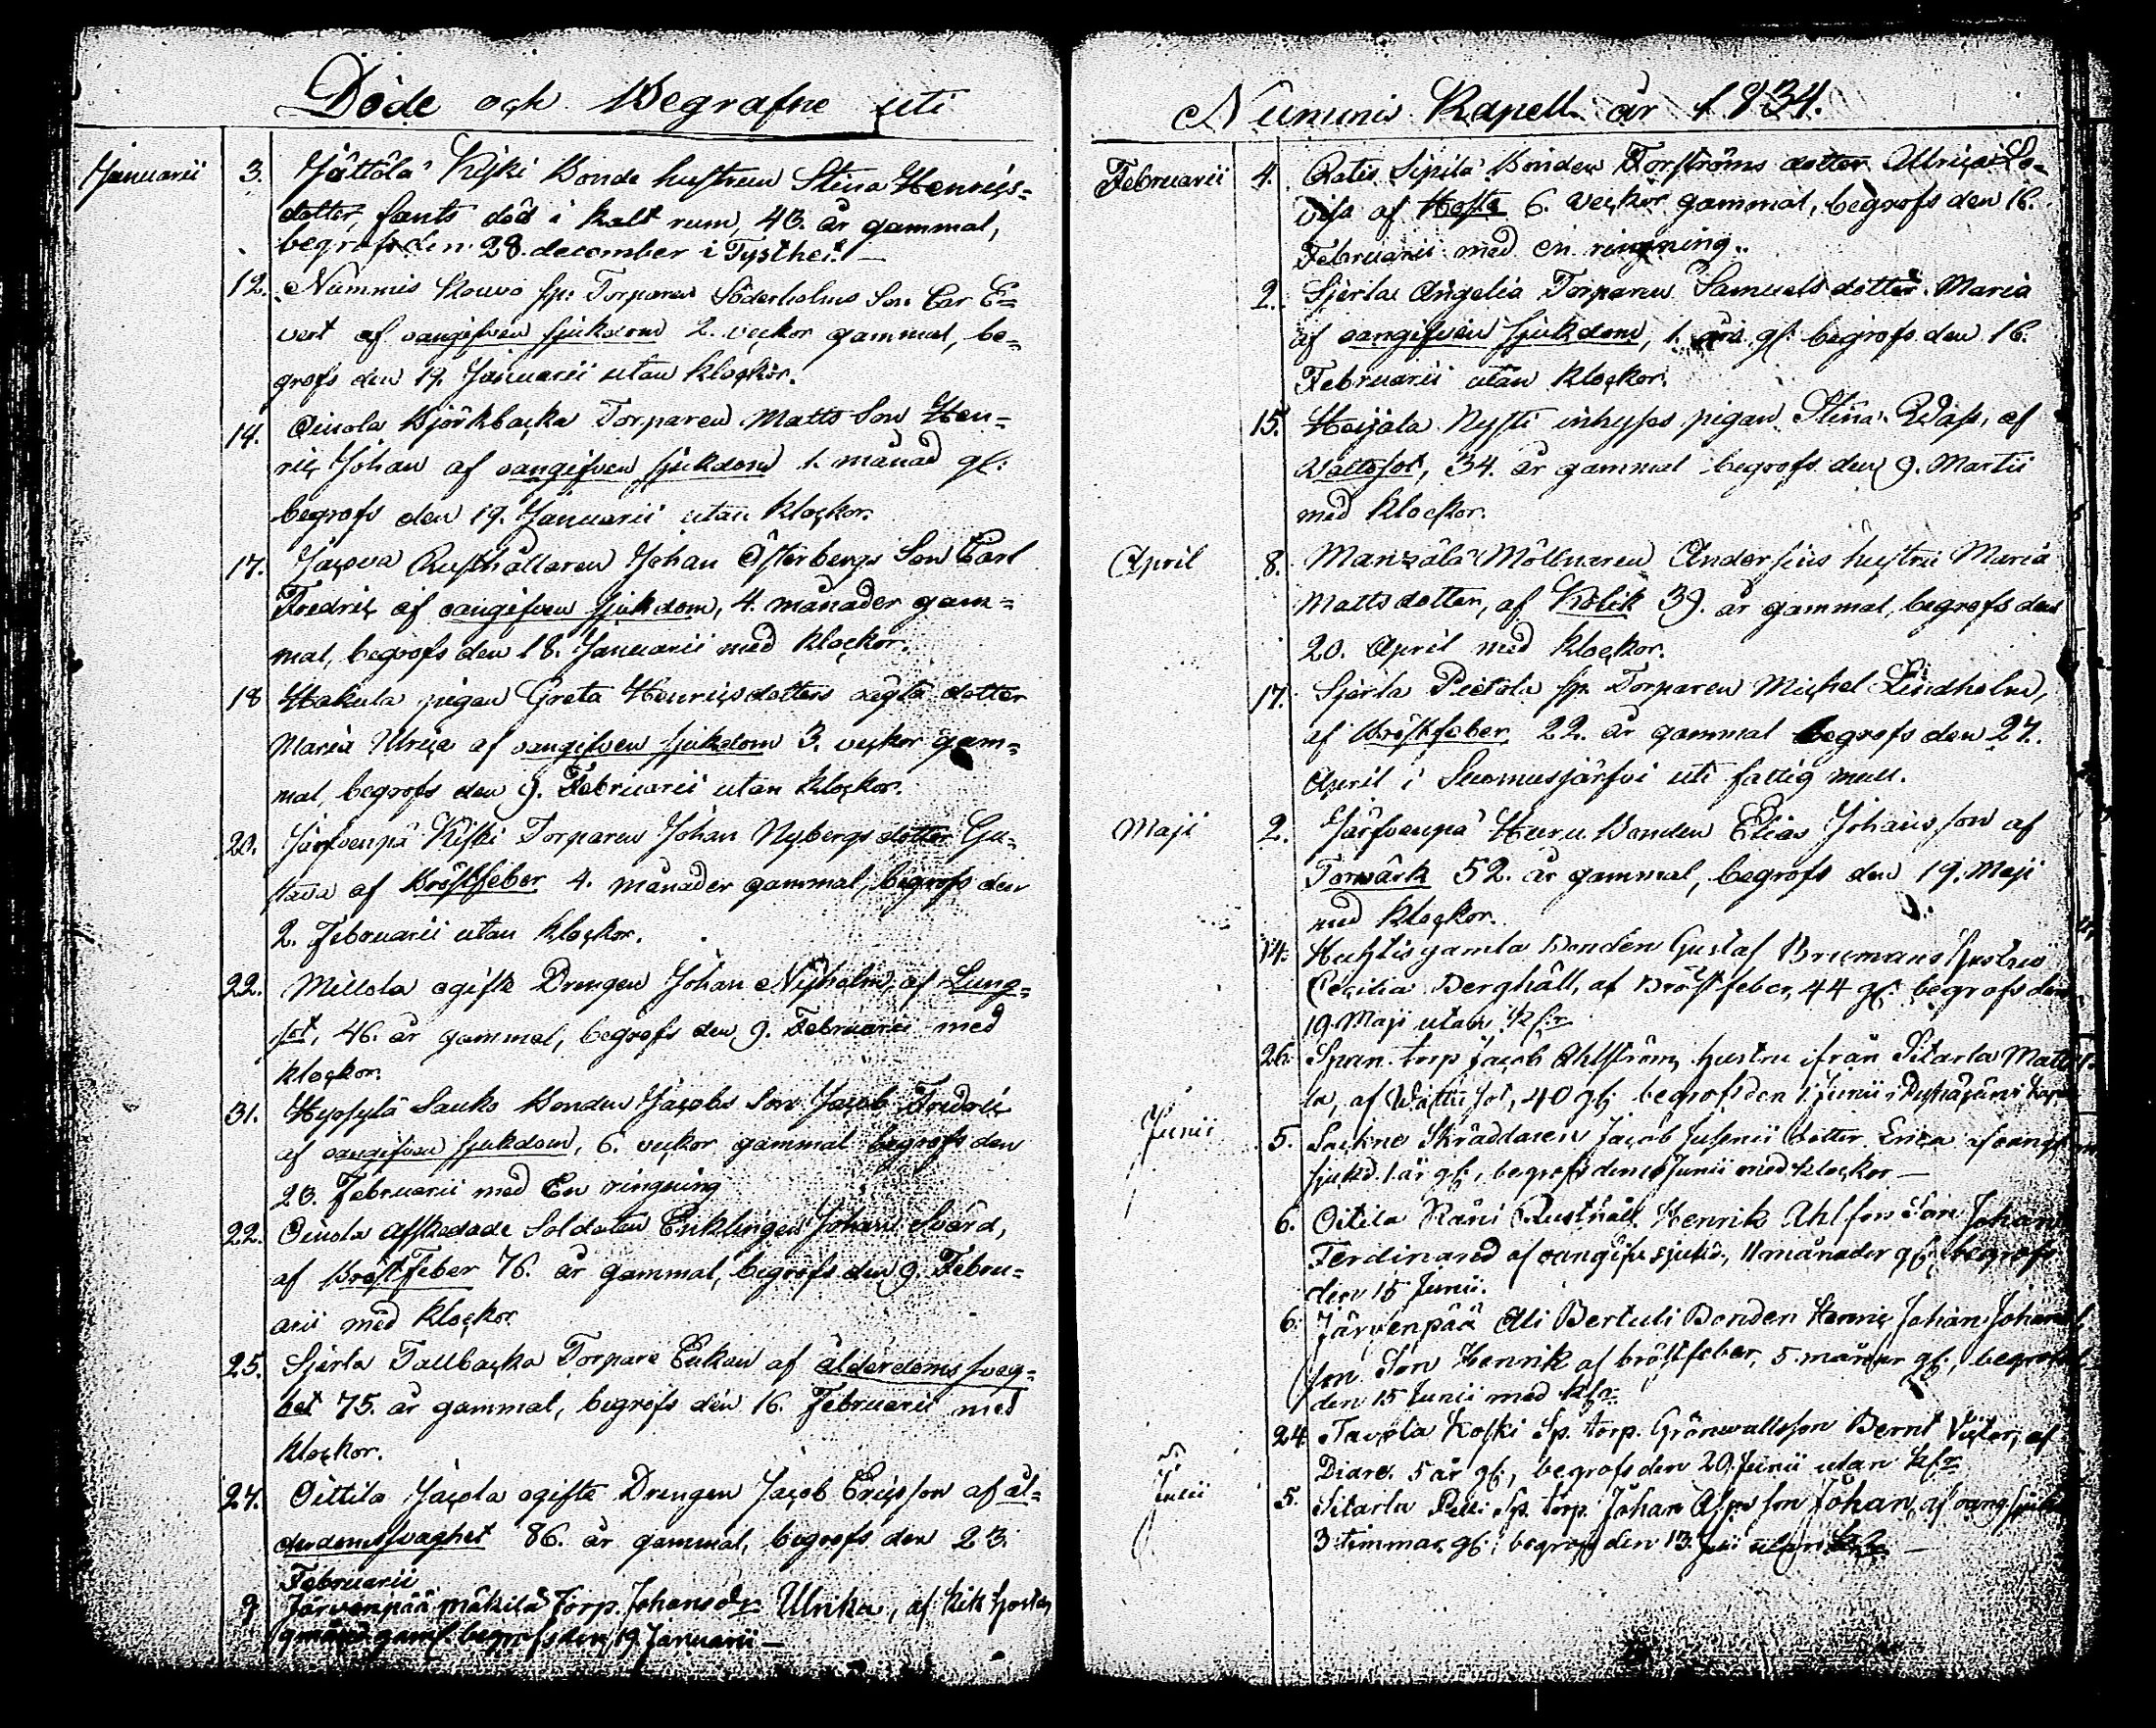 Döde och Begrafne uti
Januarii 3. Jättölä Kiski Bonde hustrun Stina Henrics-
dotter, fants död i kalt rum, 43. år gammal,
begrofs den 28. december i Tysthet. —
12. Nummis Kouvo sp: Torparen Söderholms Son Car E=
vert af oangifven sjukdom 2. veckor gammal, be=
grofs den 19. Januarii utan klockor.
14. Oinola Björkbacka Torparen Matts Son Hen=
ric Johan af oangifven sjukdom 1. månad gl:
begrofs den 19. Januarii utan klockor.
17. Jacova Rusthållaren Johan Österbergs Son Carl
Fredric af oangifven sjukdom, 4. månader gam=
mal, begrofs den 18. Januarii med klockor.
18 Hakula pigan Greta Henricsdotters oegta dotter
Maria Ulrica af oangifven sjukdom 3. veckor gam=
mal, begrofs den 9. Februarii utan klockor.
20. Järfvenpä Kiski Torparen Johan Nybergs dotter Gu=
stava af Bröstfeber 4. månader gammal, begrofs den
2. Februarii utan klockor.
22. Millola ogifte Drengen Johan Nyholm, af Lung=
sot, 46. år gammal, begrofs den 9. Februarii med
klockor.
31. Hyrsylä Sauko Bonden Jacobs Son Jacob Fredric
af oangifven sjukdom, 6. veckor gammal begrofs den
23. Februarii med En ringning
22. Oinola Afskedade Soldaten Enklingen Johan Svärd,
af BröstFeber 76. år gammal, begrofs den 9. Febru=
arii med klockor.
25. Sjerla Tallbacka Torpare Enkan af ålderdoms svag=
het 75. år gammal, begrofs den 16. Februarii med
klockor.
27. Oittila Jacola ogifte Drengen Jacob Ericsson af ål=
derdomssvaghet 86. år gammal, begrofs den 23.
Februarii
9 Järvenpää mäkilä Torp. Johans dr Ulrika, af Kikhostan
9 månad gaml. begrofs den 19 Januarii —
Nummis Kapell år 1834.
Februarii 4. Ratis Sipilä Bonden Forströms dotter Ulrica Lo=
visa af Hosta 6. veckor gammal, begrofs den 16.
Februarii med en ringning.
2. Sjerla Angelia Torparen Samuels dotter Maria
af oangifven sjukdom, 1. års gl: begrofs den 16.
Februarii utan klockor.
15. Heijala Nysti inhyses pigan Stina, af
Wattusot, 34. år gammal begrofs den 9. Martii
med klockor.
April 8. Manzälä Möllnaren Andersins hustru Maria
Matts dotter, af Kolik 39. år gammal, begrofs den
20. April med klockor.
17. Sjerla Pietola sp. Torparen Michel Lindholm,
af Bröstfeber 22. år gammal begrofs den 27.
April i Suomusjärfvi uti fattig mull.
Maji 2. Järfvenpä Huru Bonden Elias Johansson af
Torrvärk 52. år gammal, begrofs den 19. Maji
med klockor.
14. Huhtis gamla Bonden Gustaf Brumans hustru
Cecilia Berghäll, af Bröstfeber, 44 gl: begrofs den
19. Maji utan kl:r
26. Span. torp Jacob Ahlström, hustru ifrån Sitarla Matt
la, af Wattu sot, 40 gl: begrofs den 1. Junii i Kap
Junii 5. Skräddaren Jacob dotter Erica af oangif
sjukd. 1 år gl:, begrofs den Junii med klockor —
6. Oitila Räni Rusthåll. Henrik Ahlfors Son Johan
Ferdinand af oangifv sjukd., 11 månader gl: begrofs
den 15 Junii.
6. Järvenpää Ali Bertuli Bonden Henric Johan Johans
son Son Henrik af bröstfeber, 5 månar gl:, begrofs
den 15 Junii med kl:r
24. Tavola Koski Sp. torp. Grönvalls son Bernt Victor, af
Diarr. 5 år gl:, begrofs den 29. Junii utan kl:r
Julii 5. Sitarla Pelli Sp. torp. Johan son Johan, af oang. sjukd
3 timmar gl: begrofs den 13. Juli utan kl:r —